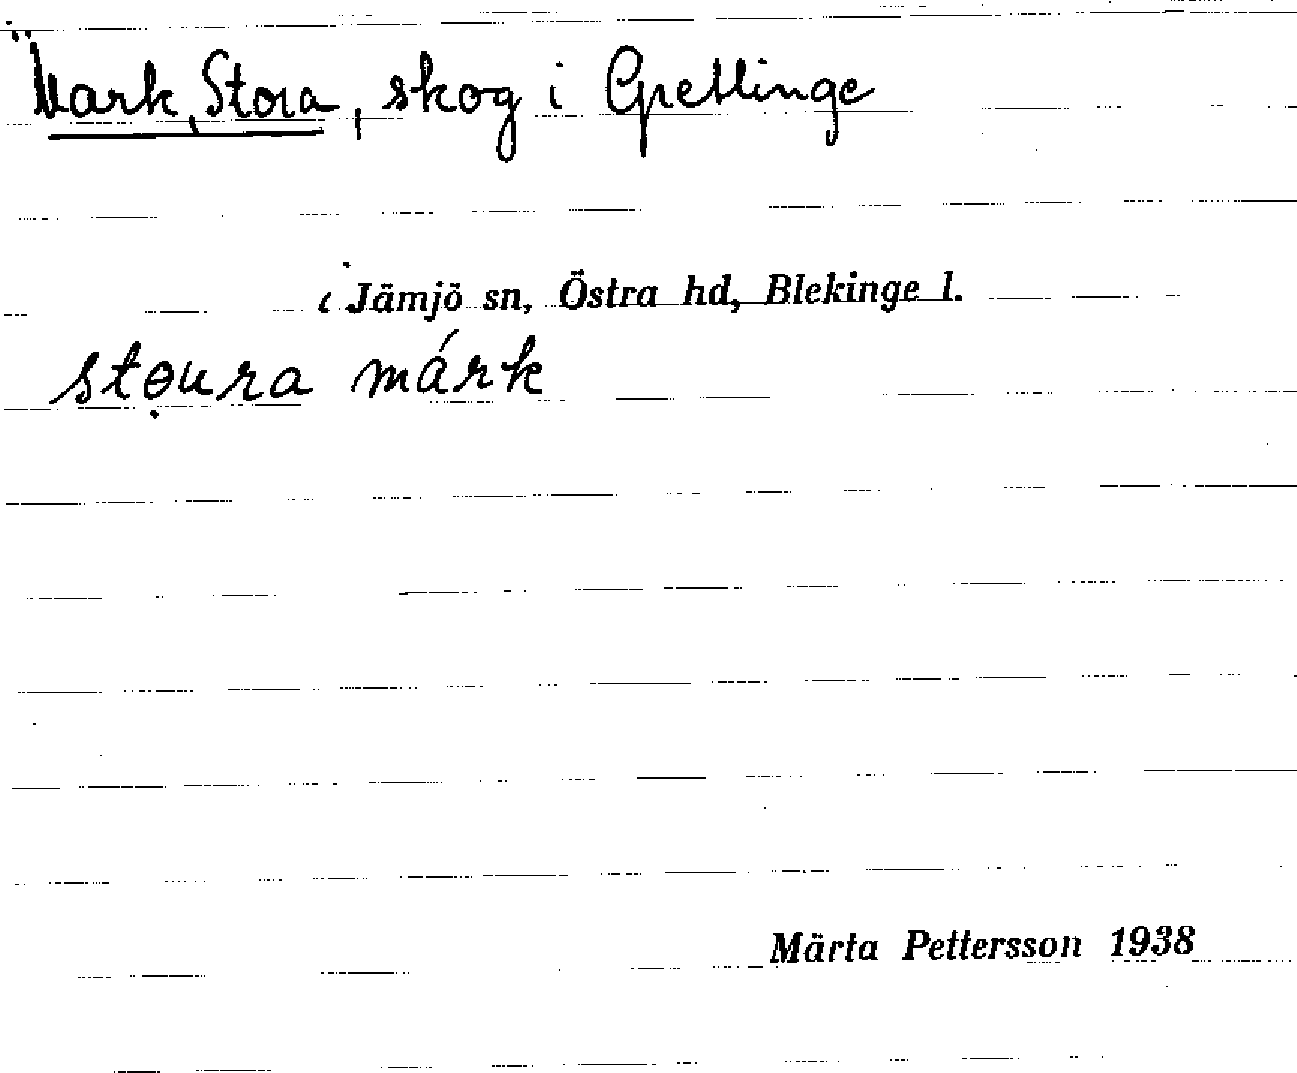 Mark, Stora, skog i Gretlinge
i Jämjö sn, Östra hd, Blekinge l.
stọura márk
Märta Pettersson 1938